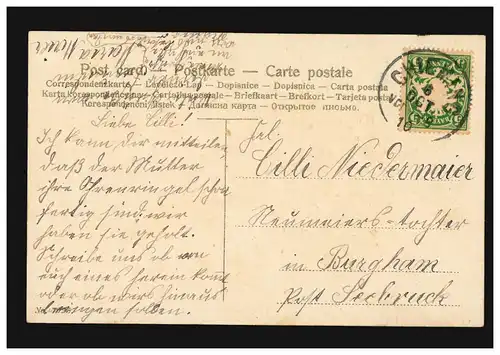 Post card. Postkarte — Carte postale
Correspondenzkarte — Levelező-Lap — Dopisnice — Dopisnica — Carta postala
Karta korespondencyjna — Cartolina postale — Briefkaart — Brefkort — Tarjeta postal
Korespondenční lístek — Дописна карта — Открытое письмо.
Liebe Cilli!
Ich kann dir mitteilen,
daß der Mutter
ihre Ohrenringel schon
fertig sind wir
haben sie geholt.
Schreibe uns ob von
euch eines herein kommt
oder ob wir's hinaus
bringen sollen.
Frl.
Cilli Niedermaier
Neumeiers-tochter
in Burgham
Post Seebruck
OKT.
10